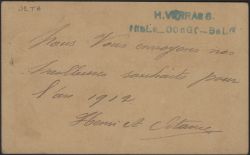 JETA
H. VERRAES
Nous vous envoyons nos
meilleurs souhaits pour
l'an 1912
Henri et